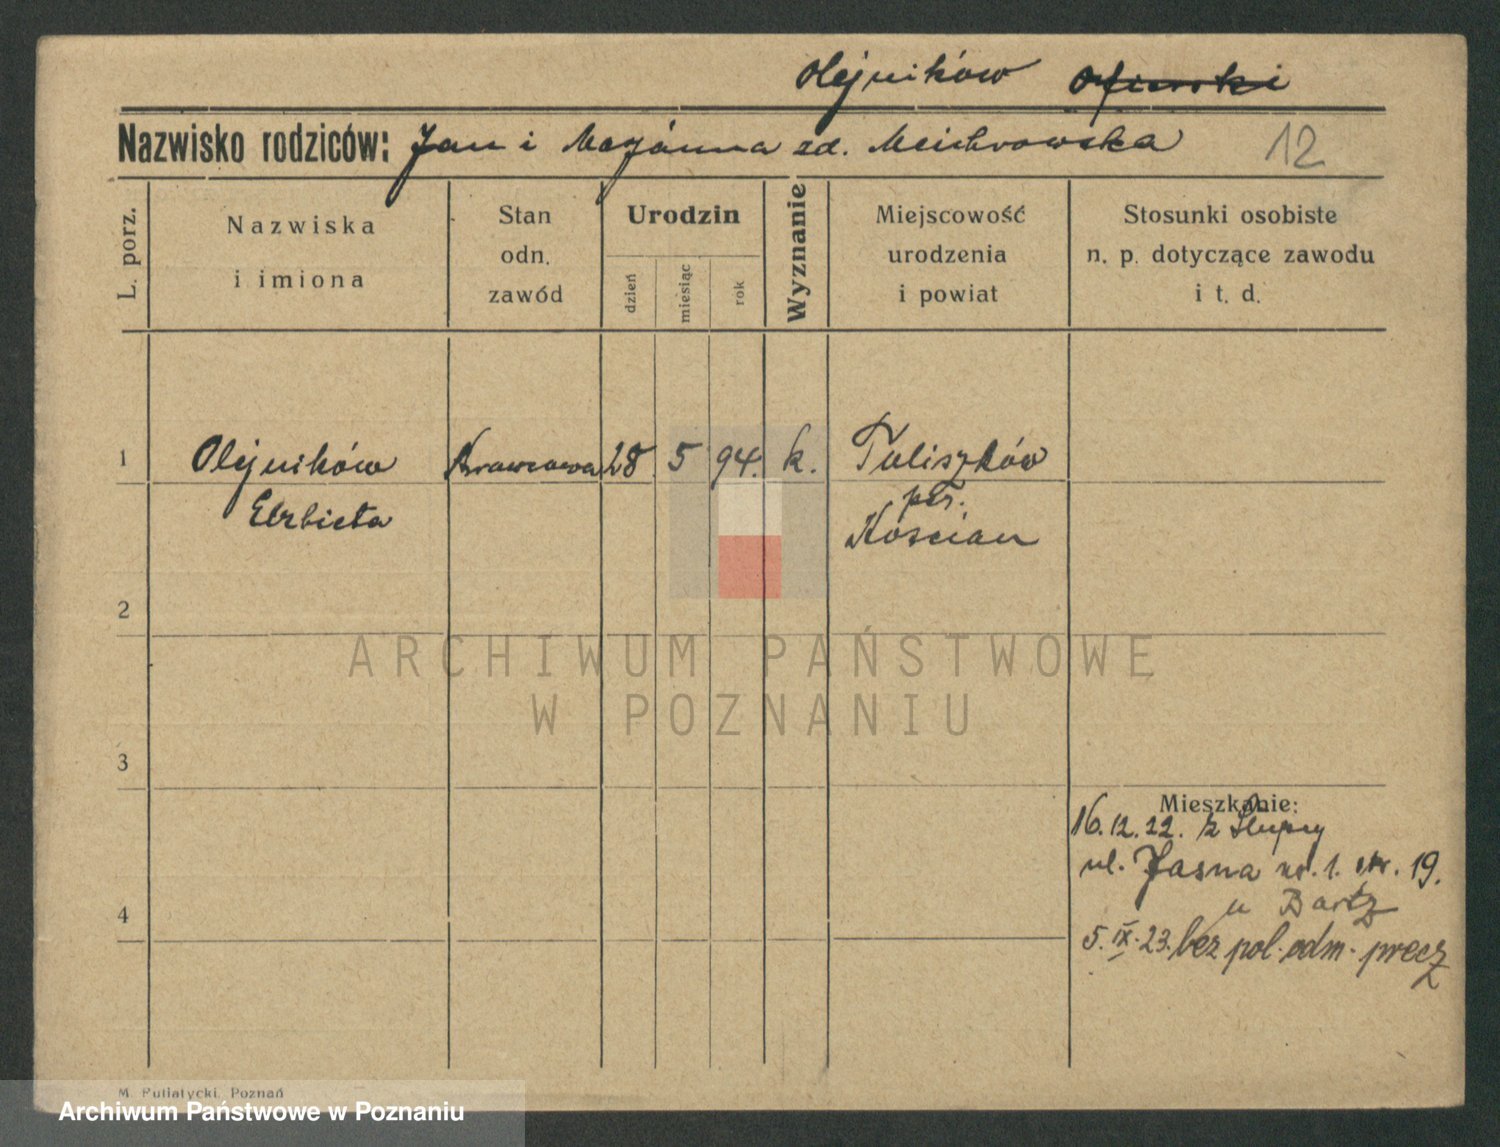 Olejników
Nazwisko rodziców: Jan i Marjanna zd.
12
L. porz.
Nazwiska
i imiona
Stan
odn.
zawód
Urodzin
dzień
miesiąc
rok
Wyznanie
Miejscowość
urodzenia
i powiat
Stosunki osobiste
n. p. dotyczące zawodu
i t. d.
1 Olejników Krawcowa 28 5 94. k. Tuliszków
Elżbieta
Koscian
2
3
4
ARCHIWUM PAŃSTWOWE
W POZNANIU
Mieszkanie:
16.12.22. z Słupcy
ul. Jasna nr. 1. ptr. 19.
u Bartz
5.IX.23. bez pol. odm. precz
M. Putiatycki, Poznań
Archiwum Państwowe w Poznaniu